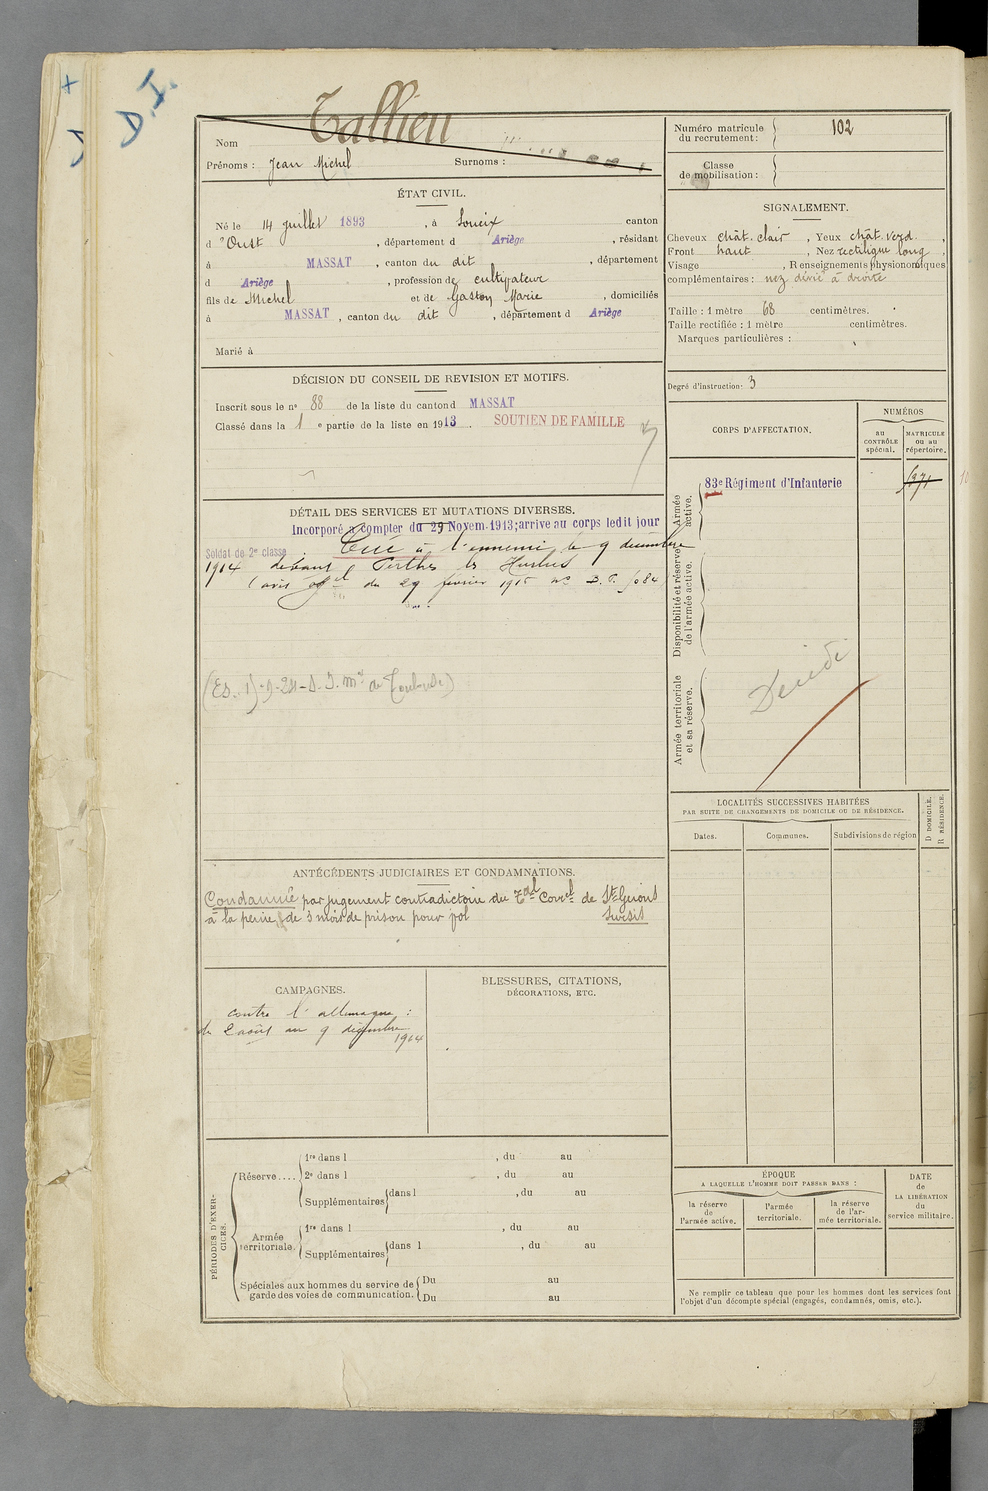 D.I.
Tallieu
Nom
Prénoms : Jean Michel Surnoms :
Numéro matricule du recrutement : 102
Classe de mobilisation :
ÉTAT CIVIL.
Né le 14 juillet 1893, à Soueix canton
d'Oust, département d Ariège, résidant
à MASSAT, canton du dit, département
d Ariège, profession de cultivateur
fils de Michel et de Gaston Marie, domiciliés
à MASSAT, canton du dit, département d Ariège
Marié à
SIGNALEMENT.
Cheveux chât. clair, Yeux chât. verd.,
Front haut, Nez rectiligne long,
Visage , Renseignements physionomiques
complémentaires : nez dévié à droite
Taille : 1 mètre 68 centimètres.
Taille rectifiée : 1 mètre centimètres.
Marques particulières :
Degré d'instruction : 3
DÉCISION DU CONSEIL DE REVISION ET MOTIFS.
Inscrit sous le n° 88 de la liste du canton d MASSAT
Classé dans la 1e partie de la liste en 1913. SOUTIEN DE FAMILLE
CORPS D'AFFECTATION.
NUMÉROS
au CONTRÔLE spécial.
MATRICULE ou au répertoire.
Armée active.
83e Régiment d'Infanterie
Disponibilité et réserve de l'armée active.
Armée territoriale et sa réserve.
Décédé
DÉTAIL DES SERVICES ET MUTATIONS DIVERSES.
Incorporé à compter du 29 Novem. 1913; arrivé au corps ledit jour
Soldat de 2e classe. Tué à l'ennemi le 9 décembre
1914 devant Perthes les Hurlus
(avis oel du 29 février 1915 no B.P. 1084
LOCALITÉS SUCCESSIVES HABITÉES
PAR SUITE DE CHANGEMENTS DE DOMICILE OU DE RÉSIDENCE.
Dates. Communes. Subdivisions de région
D DOMICILE.
R RÉSIDENCE.
ANTÉCÉDENTS JUDICIAIRES ET CONDAMNATIONS.
Condamné par jugement contradictoire du Tal Correl de St Girons
à la peine de 3 mois de prison pour vol
Sursis
CAMPAGNES.
contre l'allemagne :
du 2 août au 9 décembre
1914
BLESSURES, CITATIONS,
DÉCORATIONS, ETC.
PÉRIODES D'EXERCICES.
Réserve....
1re dans l , du au
2e dans l , du au
Supplémentaires dans l , du au
Armée territoriale.
1re dans l , du au
Supplémentaires dans l , du au
Spéciales aux hommes du service de garde des voies de communication.
Du au
Du au
ÉPOQUE
A LAQUELLE L'HOMME DOIT PASSER DANS :
la réserve de l'armée active.
l'armée territoriale.
la réserve de l'armée territoriale.
DATE de LA LIBÉRATION du service militaire.
Ne remplir ce tableau que pour les hommes dont les services font
l'objet d'un décompte spécial (engagés, condamnés, omis, etc.).